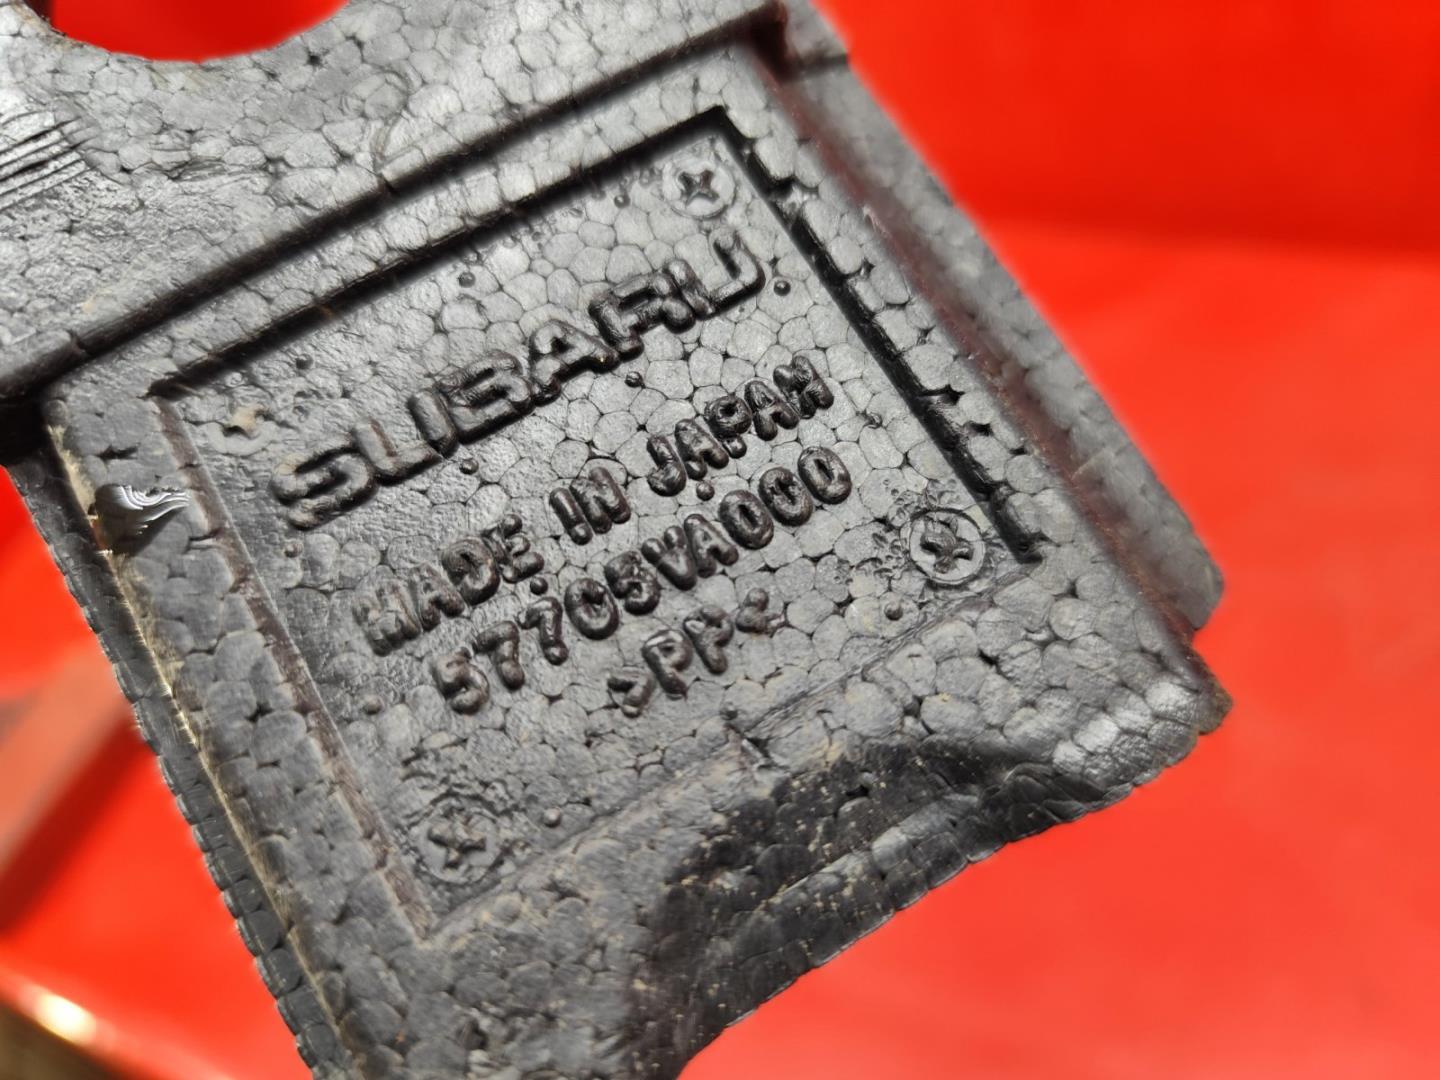 SUBARU
MADE IN JAPAN
57705VA000
>PP<